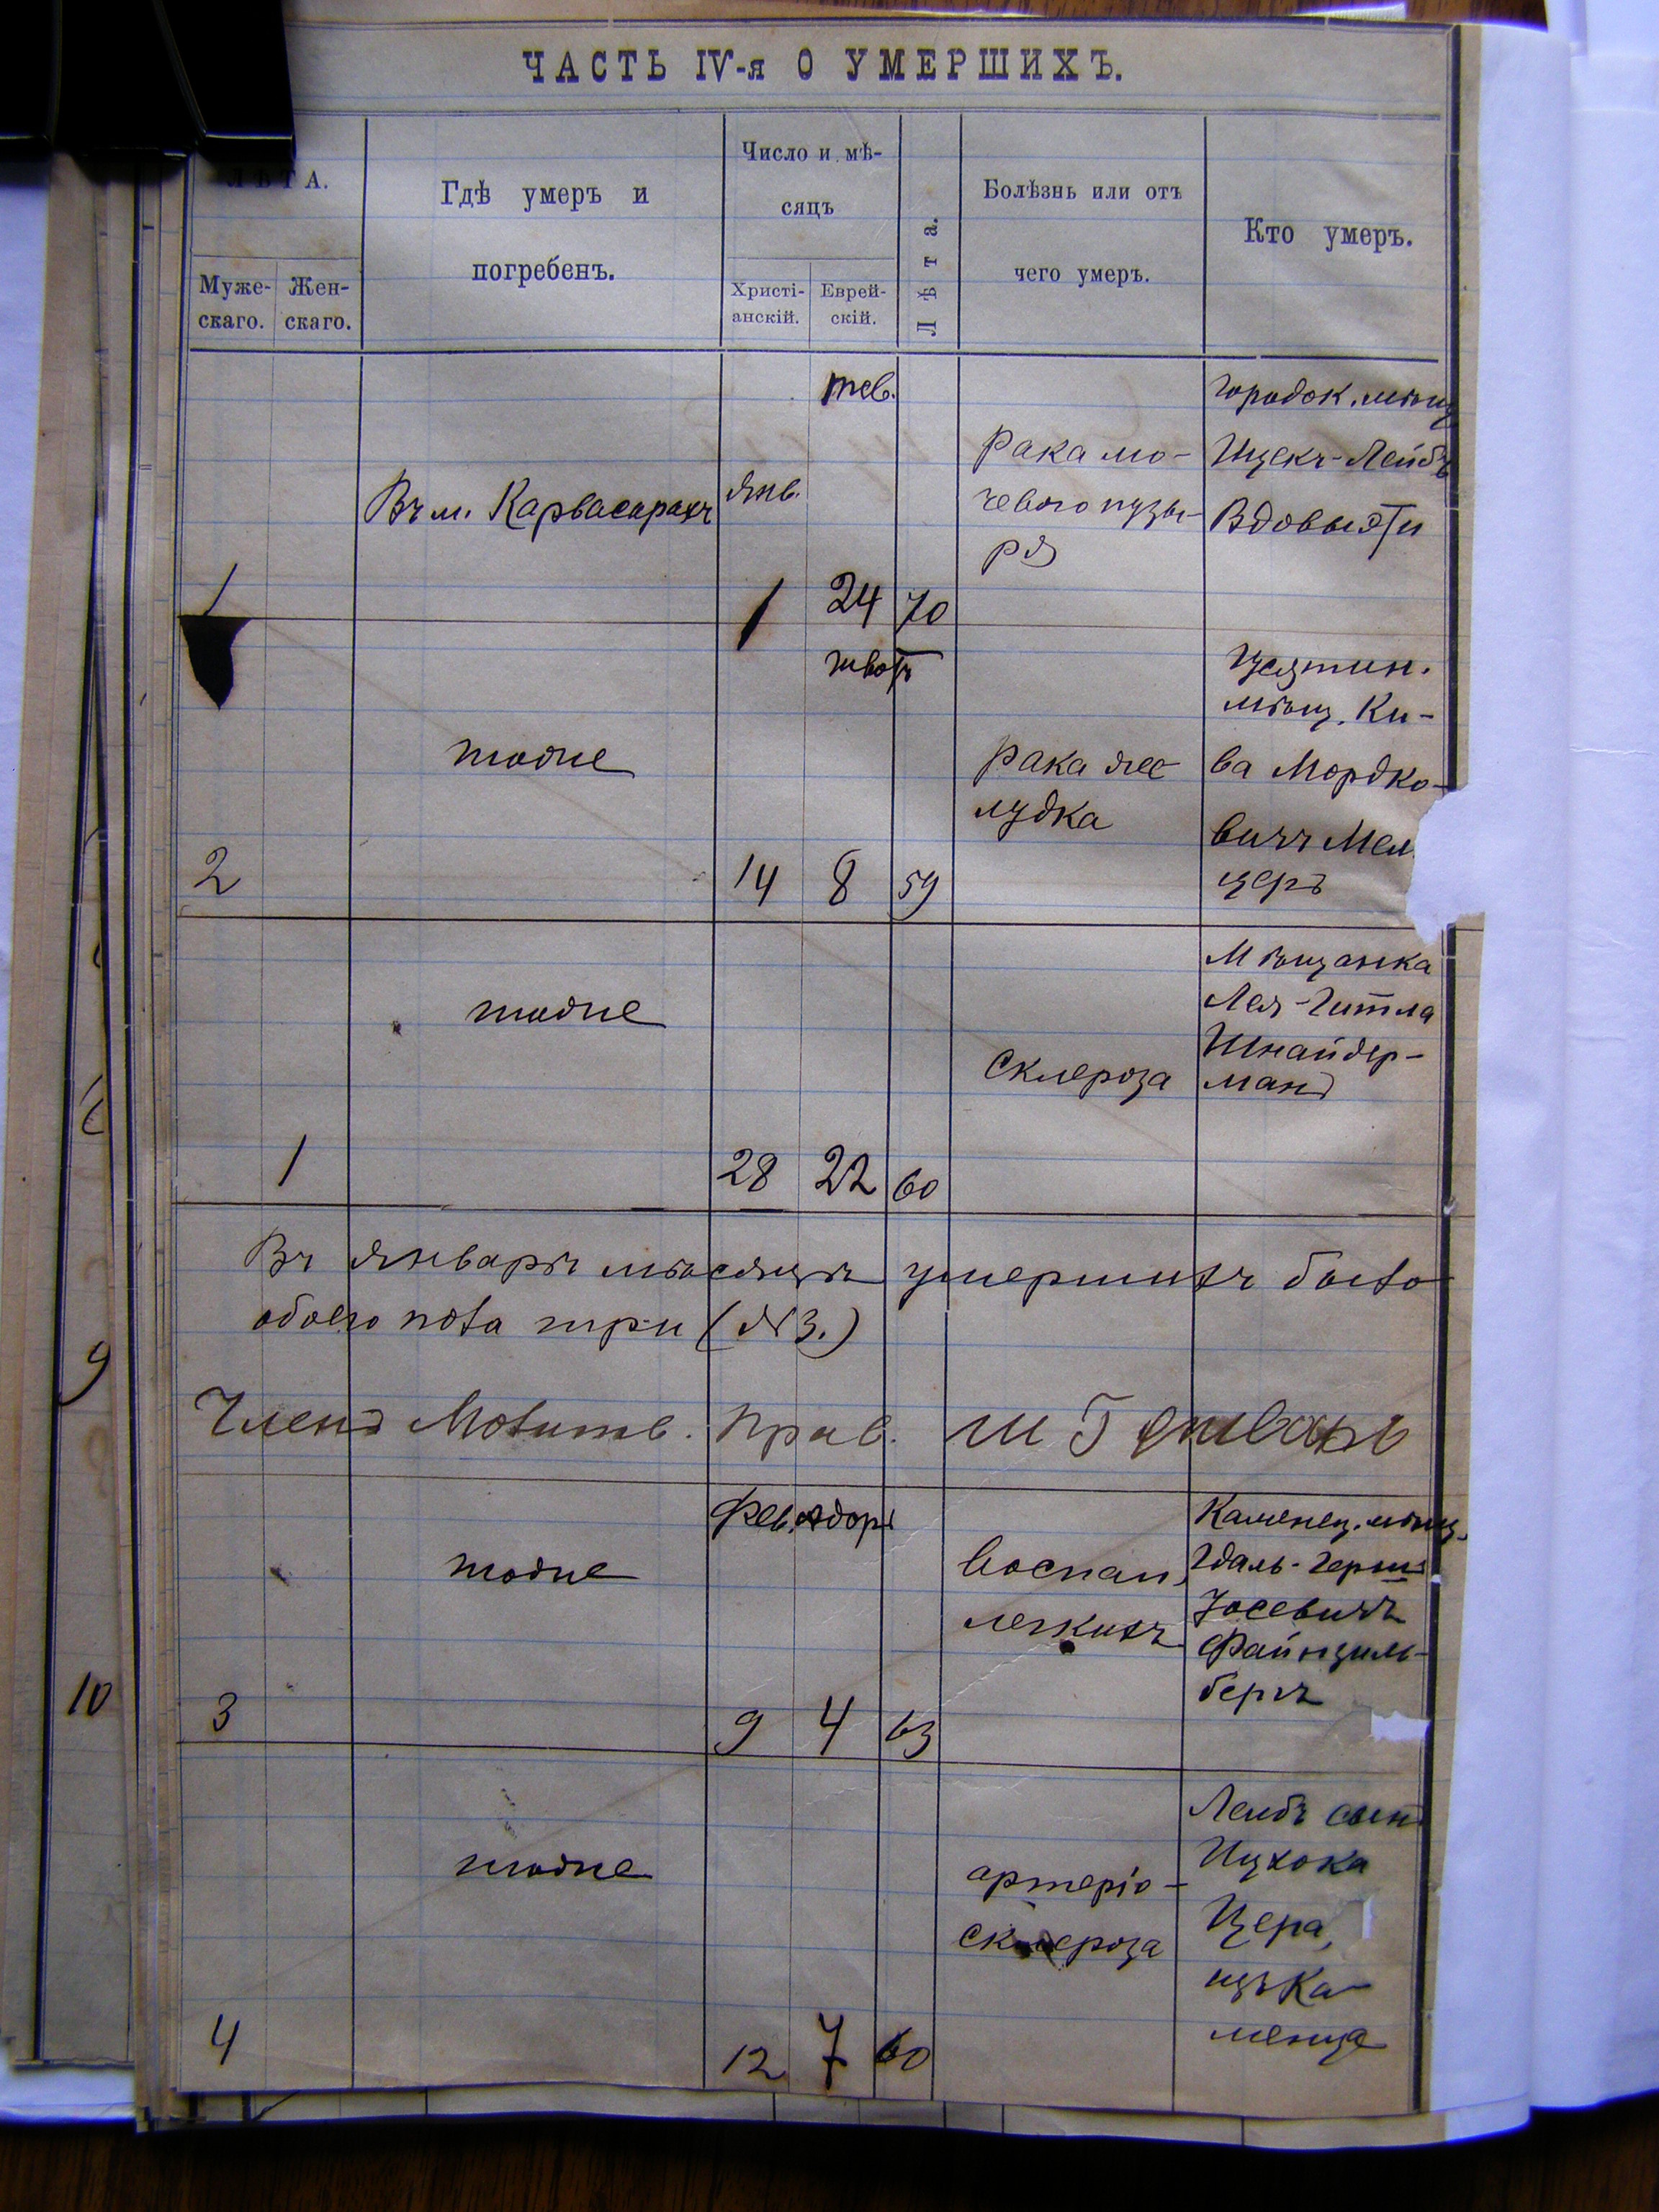 ЧАСТЬ IV-я О УМЕРШИХЪ.
ЛѢТА.
Муже-
скаго.
Жен-
скаго.
Гдѣ умеръ и
погребенъ.
Число и мѣ-
сяцъ
Христі-
анскій.
Еврей-
скій.
Лѣта.
Болѣзнь или отъ
чего умеръ.
Кто умеръ.
1
Въ м. Карвасарахъ
Янв.
1
тев.
24
70
Рака мо-
чевого пузы-
ря
Городок. мѣщ
Ицекъ-Лейбъ
2
тоже
14
шватъ
8
59
Рака же
лудка
мѣщ. Ки-
ва Мордко-
вичъ Мел
церъ
1
тоже
28
22
60
Склероза
Мѣщанка
Лея-Гитла
Шнайдер-
манъ
Въ январѣ мѣсяцѣ умершихъ было
обоего пола три (№3.)
Членъ Молитв. Прав.
3
тоже
Фев.
9
Адоръ
4
63
Воспал.
легкихъ
Каменец. мѣщ.
Гдаль-Герш
Йосевичъ
Файнзиль-
бергъ
4
тоже
12
7
60
артеріо-
склероза
Лейбъ сынъ
Ицхока
Цера,
изъ Ка-
менца
9
10